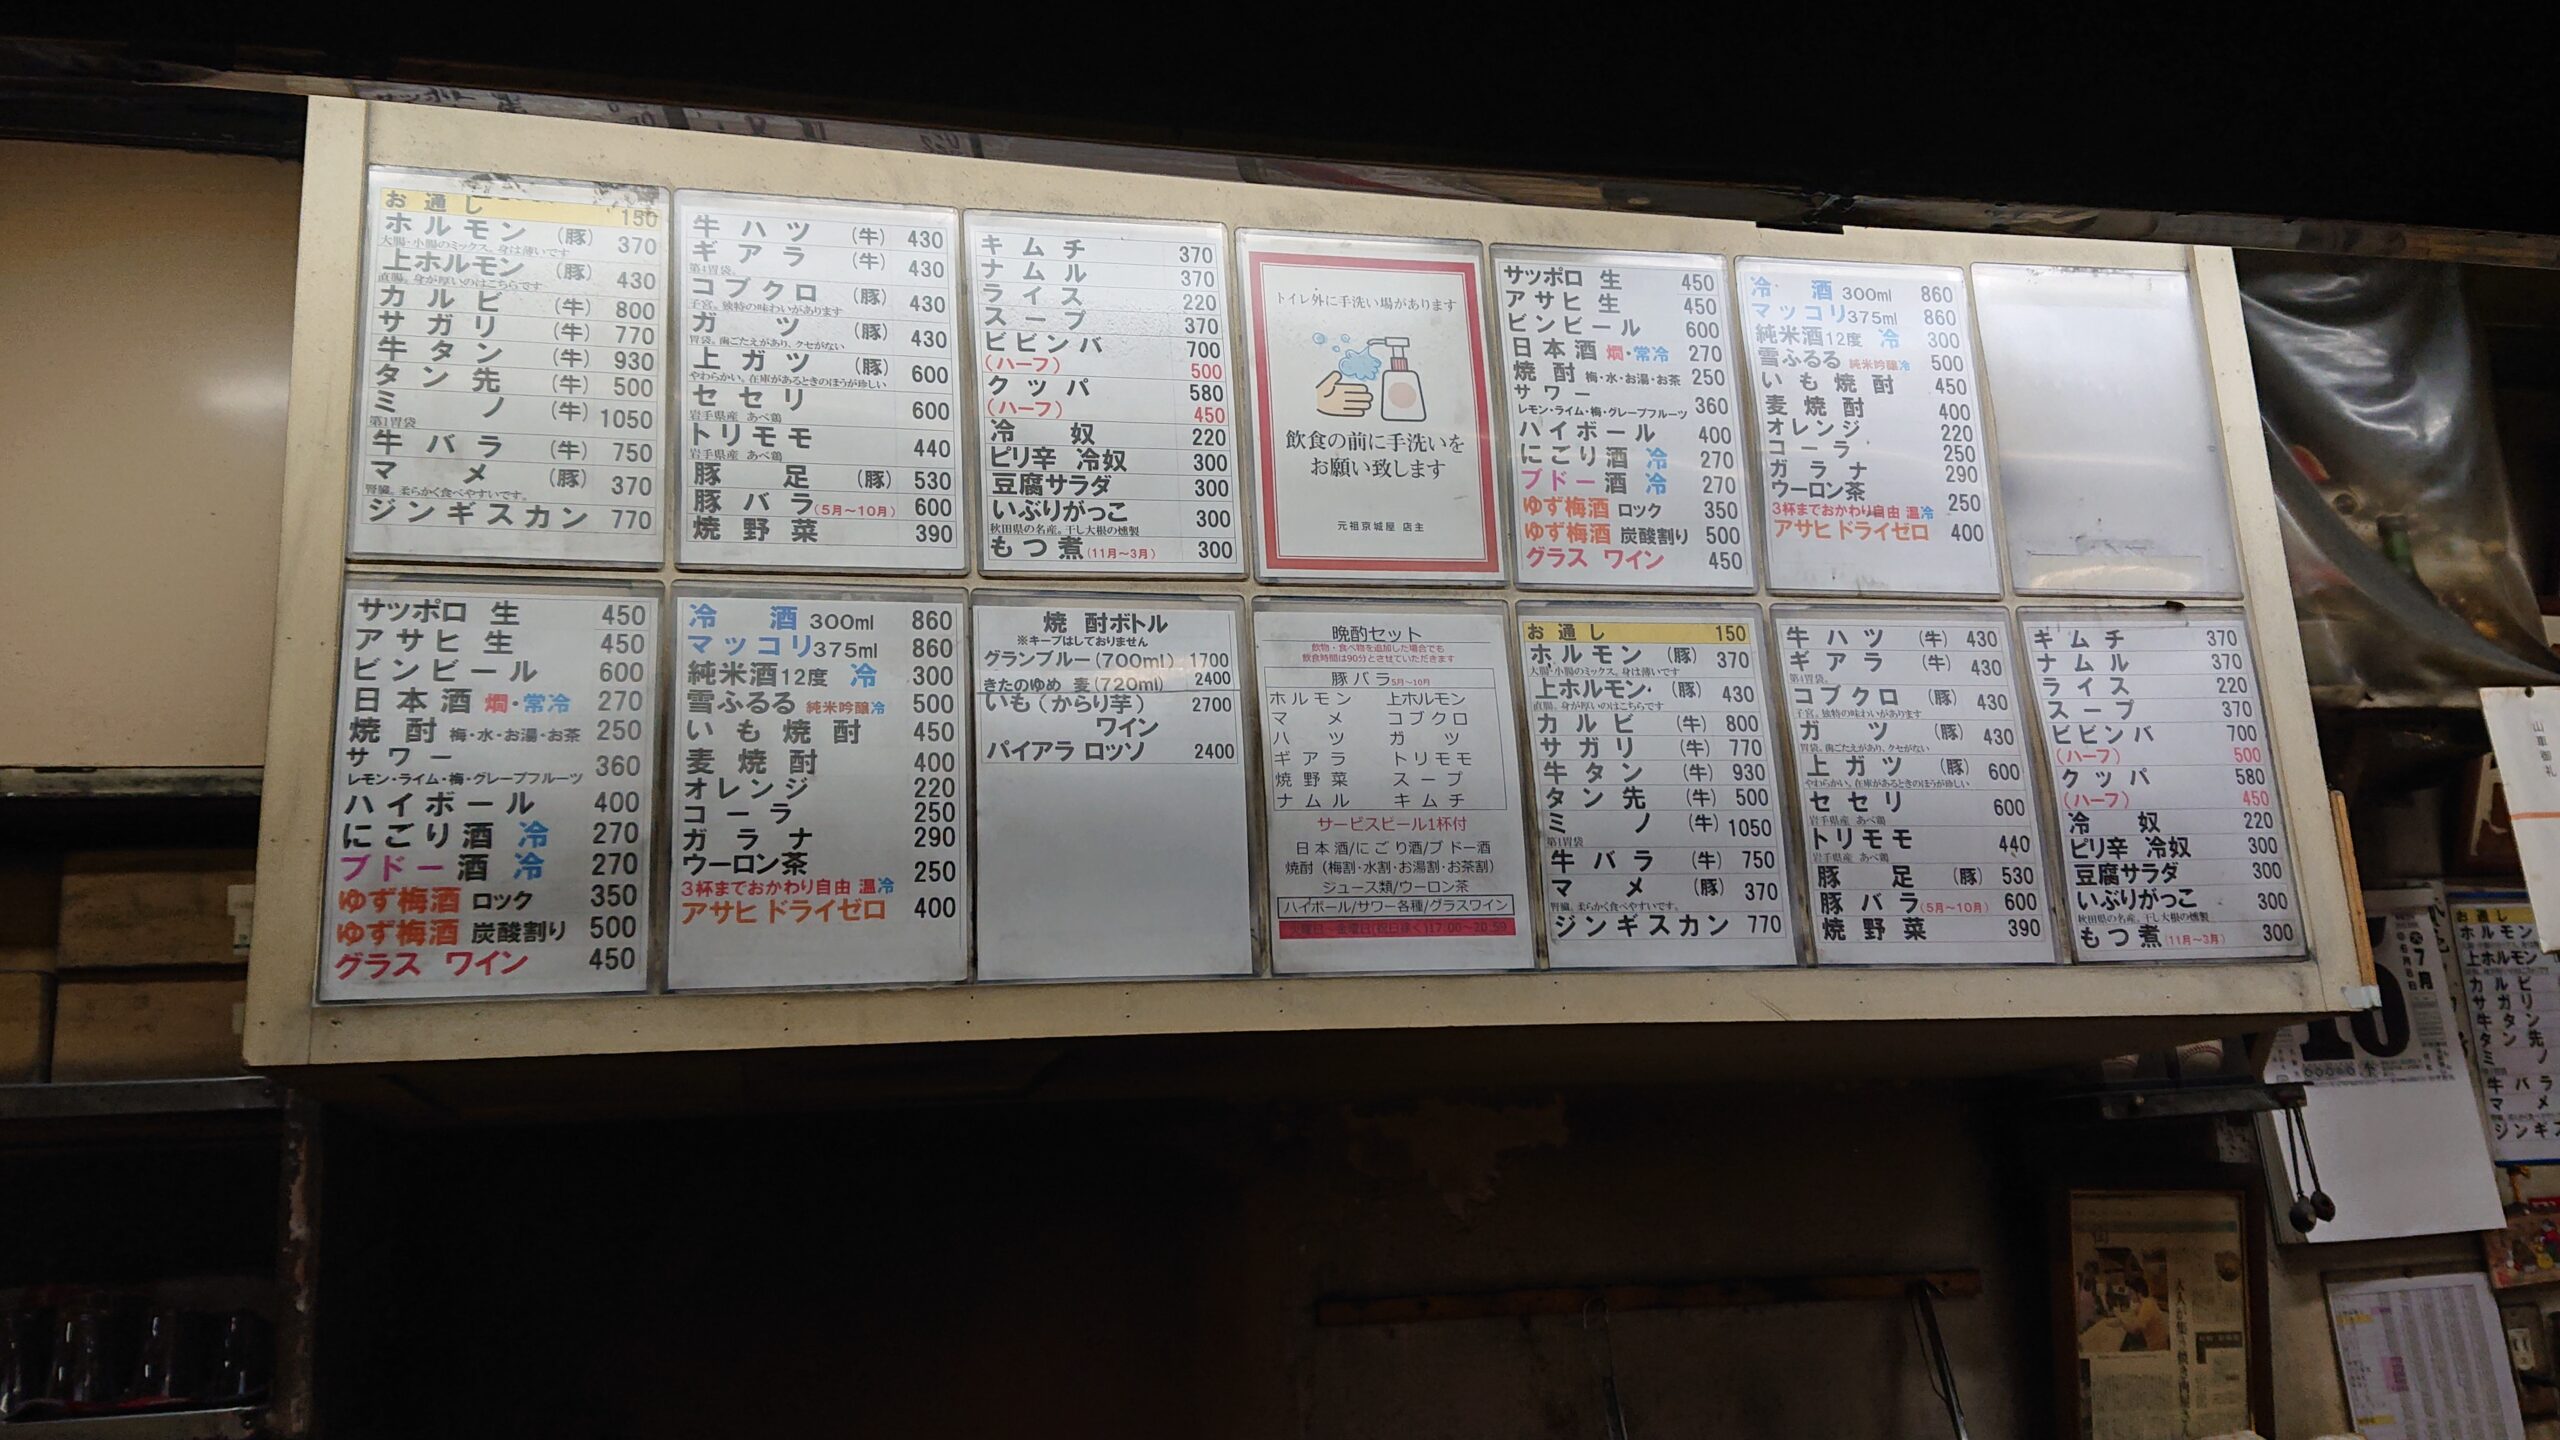 お通し 150
ホルモン (豚) 370
大腸・小腸のミックス。身は薄いです
上ホルモン (豚) 430
直腸。身が厚いのはこちらです
カルビ (牛) 800
サガリ (牛) 770
牛タン (牛) 930
タン先 (牛) 500
ミノ (牛) 1050
第1胃袋
牛バラ (牛) 750
マメ (豚) 370
腎臓。柔らかく食べやすいです。
ジンギスカン 770
牛ハツ (牛) 430
ギアラ (牛) 430
第4胃袋。
コブクロ (豚) 430
子宮。独特の味わいがあります
ガツ (豚) 430
胃袋。歯ごたえがあり、クセがない
上ガツ (豚) 600
やわらかい。在庫があるときのほうが珍しい
セセリ 600
岩手県産 あべ鶏
トリモモ 440
岩手県産 あべ鶏
豚足 (豚) 530
豚バラ(5月~10月) 600
焼野菜 390
キムチ 370
ナムル 370
ライス 220
スープ 370
ビビンバ 700
(ハーフ) 500
クッパ 580
(ハーフ) 450
冷奴 220
ピリ辛 冷奴 300
豆腐サラダ 300
いぶりがっこ 300
秋田県の名産。干し大根の燻製
もつ煮(11月~3月) 300
トイレ外に手洗い場があります
飲食の前に手洗いを
お願い致します
元祖京城屋 店主
サッポロ 生 450
アサヒ 生 450
ビンビール 600
日本酒 燗・常冷 270
焼酎 梅・水・お湯・お茶 250
サワー 360
レモン・ライム・梅・グレープフルーツ
ハイボール 400
にごり酒 冷 270
ブドー酒 冷 270
ゆず梅酒 ロック 350
ゆず梅酒 炭酸割り 500
グラス ワイン 450
冷酒 300ml 860
マッコリ375ml 860
純米酒12度 冷 300
雪ふるる 純米吟醸冷 500
いも焼酎 450
麦焼酎 400
オレンジ 220
コーラ 250
ガラナ 290
ウーロン茶 250
3杯までおかわり自由 温冷
アサヒ ドライゼロ 400
サッポロ 生 450
アサヒ 生 450
ビンビール 600
日本酒 燗・常冷 270
焼酎 梅・水・お湯・お茶 250
サワー 360
レモン・ライム・梅・グレープフルーツ
ハイボール 400
にごり酒 冷 270
ブドー酒 冷 270
ゆず梅酒 ロック 350
ゆず梅酒 炭酸割り 500
グラス ワイン 450
冷酒 300ml 860
マッコリ375ml 860
純米酒12度 冷 300
雪ふるる 純米吟醸冷 500
いも焼酎 450
麦焼酎 400
オレンジ 220
コーラ 250
ガラナ 290
ウーロン茶 250
3杯までおかわり自由 温冷
アサヒ ドライゼロ 400
焼酎ボトル
※キープはしておりません
グランブルー(700ml) 1700
きたのゆめ 麦(720ml) 2400
いも(からり芋) 2700
ワイン
パイアラ ロッソ 2400
晩酌セット
飲物・食べ物を追加した場合でも
飲食時間は90分とさせていただきます
豚バラ5月~10月
ホルモン 上ホルモン
マメ コブクロ
ハツ ガツ
ギアラ トリモモ
焼野菜 スープ
ナムル キムチ
サービスビール1杯付
日本酒/にごり酒/ブドー酒
焼酎(梅割・水割・お湯割・お茶割)
ジュース類/ウーロン茶
ハイボール/サワー各種/グラスワイン
火曜日~金曜日(祝日除く)17:00~20:59
お通し 150
ホルモン (豚) 370
大腸・小腸のミックス。身は薄いです
上ホルモン (豚) 430
直腸。身が厚いのはこちらです
カルビ (牛) 800
サガリ (牛) 770
牛タン (牛) 930
タン先 (牛) 500
ミノ (牛) 1050
第1胃袋
牛バラ (牛) 750
マメ (豚) 370
腎臓。柔らかく食べやすいです。
ジンギスカン 770
牛ハツ (牛) 430
ギアラ (牛) 430
第4胃袋。
コブクロ (豚) 430
子宮。独特の味わいがあります
ガツ (豚) 430
胃袋。歯ごたえがあり、クセがない
上ガツ (豚) 600
やわらかい。在庫があるときのほうが珍しい
セセリ 600
岩手県産 あべ鶏
トリモモ 440
岩手県産 あべ鶏
豚足 (豚) 530
豚バラ(5月~10月) 600
焼野菜 390
キムチ 370
ナムル 370
ライス 220
スープ 370
ビビンバ 700
(ハーフ) 500
クッパ 580
(ハーフ) 450
冷奴 220
ピリ辛 冷奴 300
豆腐サラダ 300
いぶりがっこ 300
秋田県の名産。干し大根の燻製
もつ煮(11月~3月) 300
山車御礼
7月
お通し
ホルモン
上ホルモン
カルビ
サガリ
牛タン
タン先
ミノ
牛バラ
マメ
ジンギス